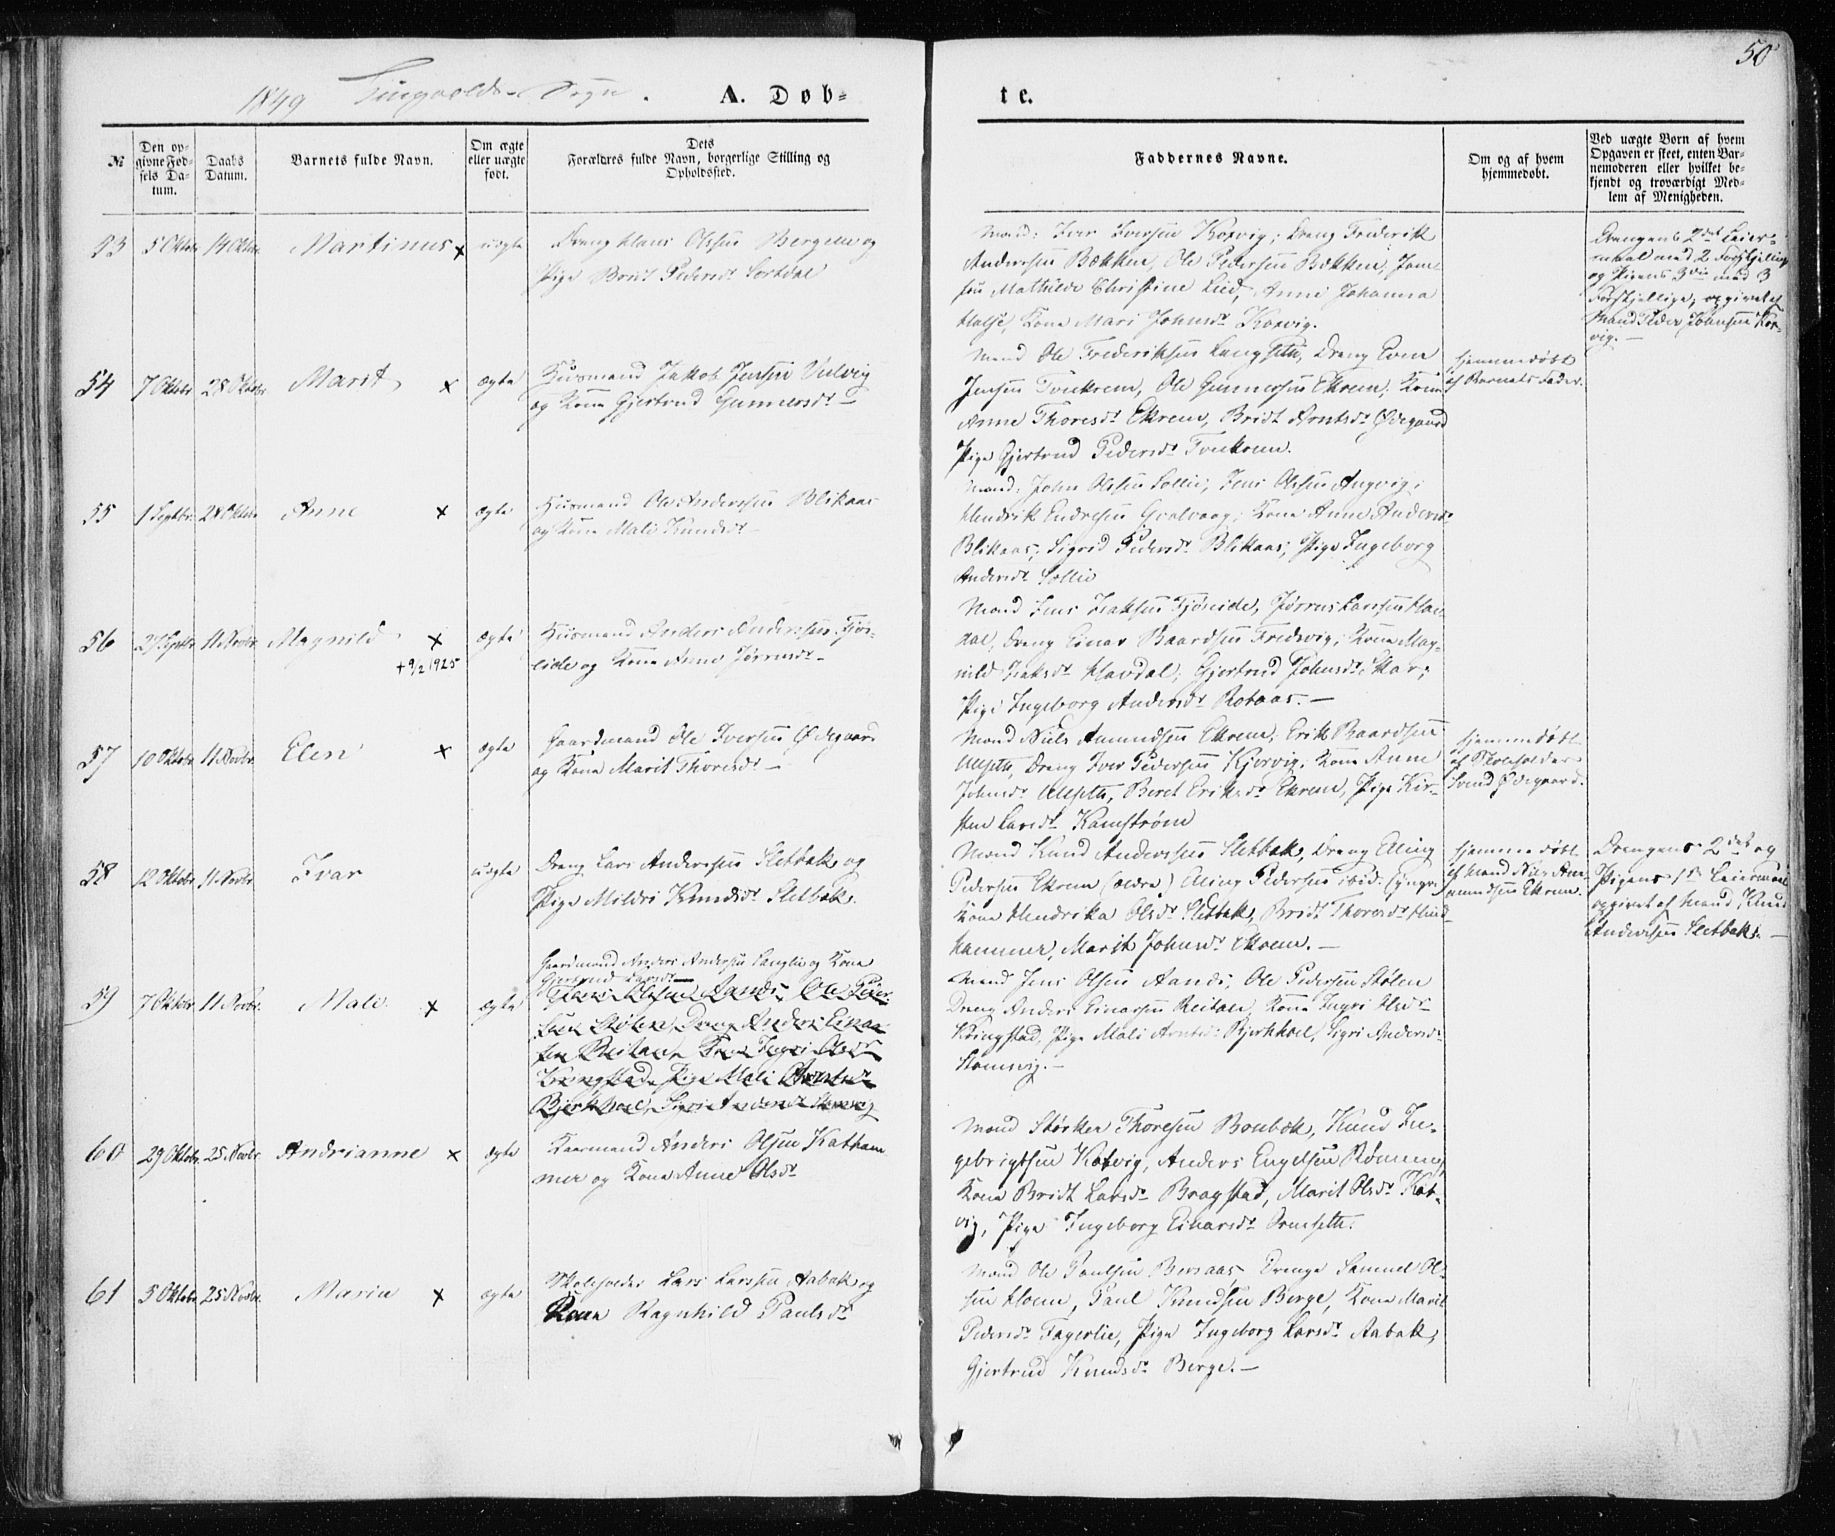 50
1849 Tingvolds Sogn.
A. Døb-
te.
№
Den op-
givne Fød-
sels Da-
tum.
Daabs
Datum.
Barnets fulde Navn.
Om ægte
eller uægte
født.
Dets
Forældres fulde Navn, borgerlige Stilling og
Opholdssted.
Faddernes Navne.
Om og af hvem
hjemmedøbt.
Ved uægte Børn af hvem
Opgaven er skeet, enten Bar-
nemoderen eller hvilket be-
kjendt og troværdigt Med-
lem af Menigheden.
53 5 Oktbr 14 Oktbr Martinus x uægte
Dreng Hans Olssen Bergem og
Pige Brit Pedersdr
Mand: Iver Iversen Korvig; Dreng Frederik
Andersen Bækken, Ole Pedersen Bækken, Jom-
fru Mathilde Christine Lied, Anne Johanna
Halse, Kone Mari Johnsdr Korvig.
Drengens 2det Leier-
maal med 2 Forskjellige
og Pigens 3die med 3
Forskjellige, opgivet af
Mand Peder Johnsen Kor-
vig.
54 7 Oktbr 28 Oktbr Marit x ægte
Husmand Jakob Jensen Vulvig
og Kone Gjertrud Gunnersdr
Mand Ole Frederiksen Langseth, Dreng Even
Jensen Tveekrem, Ole Gunnersen Ekrem, Kone
Anne Thoresdr Ekrem, Bridt Arntsdr Ødegaard
Pige Gjertrud Pedersdr Tveekrem.
Hjemmedøbt
af Barnets Fader.
55 1 Septbr. 28 Oktbr Anne x ægte
Husmand Ole Andersen Blikaas
og Kone Mali Knudsdr
Mand: John Olssen Sollie, Jens Olssen Angvig;
Hendrik Endresen Gvalvaag; Kone Anne Andersdr
Blikaas, Sigrid Pedersdr Blikaas; Pige Ingeborg
Andersdr Sollie
56 27 Septbr. 11 Novbr. Magnild x ægte
+ 9/2 1925
Husmand Anders Andersen Fjøs-
eide og Kone Anne Jørrusdr
Mand Jens Isaksen Fjøseide, Jørrus Larssen Hav-
dal, Dreng Einar Baardsen Fredsvig; Kone Mag-
nild Isaksdr Havdal; Gjertrud Johnsdr Skar;
Pige Ingeborg Andersdr Rotaas.
57 10 Oktbr 11 Novbr. Elen x ægte
Gaardmand Ole Iversen Ødegaard
og Kone Marit Thoresdr
Mand Niels Amundsen Ekrem, Erik Baardsen
Ulseth, Dreng Iver Pedersen Kjorvig, Kone Anne
Johnsdr Ulseth, Beret Eriksdr Ekrem, Pige Kir-
sten Larsdr Kamstrøm
Hjemmedøbt
af Skoleholder
Svend Ødegaard.
58 12 Oktbr 11 Novbr Ivar uægte
Dreng Lars Andersen Sletbak og
Pige Mildri Knudsdr Sletbak.
Mand Knud Andersen Sletbak, Dreng Eling
Pedersen Ekrem (ældre) Eling Pedersen ibid: (yngre)
Kone Hendrika Olsdr Sletbak, Bridt Thoresdr Hind-
hammer, Marit Johnsdr Ekrem.
Hjemmedøbt
af Mand Niels Am-
mundsen Ekrem.
Drengens 2det og
Pigens 1ste Leiermaal
opgivet af Mand Knud
Andersen Sletbak.
59 7 Oktbr 11 Novbr. Mali x ægte
Gaardmand Anders Andersen Langlie og Kone
Gjertrud Larsdr
Jens Olssen Aandi, Ole Peder-
sen Stølen, Dreng Anders Einar-
sen Reitan, Kone Ingri Olsdr
Kringstad, Pige Mali Arntsdr
Bjerkhoel, Sigri Andersdr
Mand Jens Olsen Aandi, Ole Pedersen Stølen
Dreng Anders Einarsen Reitan, Kone Ingri Olsdr
Kringstad, Pige Mali Arntsdr Bjerkhoel, Sigri Andersdr
60 29 Oktbr. 25 Novbr. Andrianne x ægte
Gaardmand Anders Olsen Katham
mer og Kone Anne Olsdr
Mand Størker Thoresen Boubæk, Knud In-
gebrigtsen Kotvig, Anders Engelsen Rønning,
Kone Bridt Larsdr Bragstad, Marit Olsdr Kot-
vig, Pige Ingeborg Einarsdr
61 5 Oktbr. 25 Novbr. Maria x ægte
Skoleholder Lars Larsen Aabak og
Kone Ragnhild Paulsdr
Mand Ole Paulsen Bersaas, Drenge Samuel Ol-
sen Hoem, Paul Knudsen Berge, Kone Marit
Pedersdr Fagerlie, Pige Ingeborg Larsdr Aabak,
Gjertrud Knudsdr Berge.